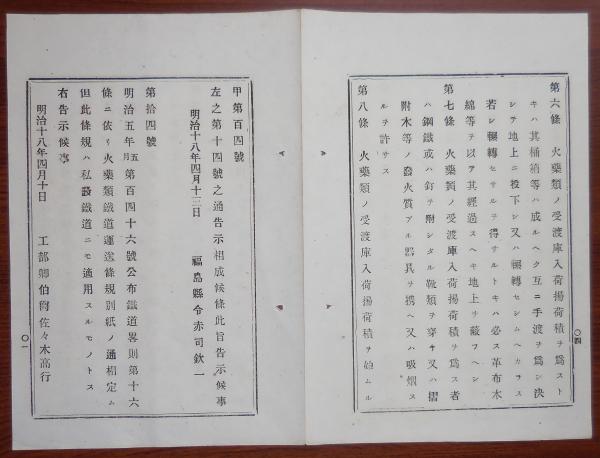 第六條　火藥類ノ受渡庫入荷揚荷積ヲ爲スト
キハ其桶箱等ハ成ルヘク互ニ手渡ヲ爲シ決
シテ地上ニ投下シ又ハ輾轉セシムヘカラス
若シ輾轉セサルヲ得サルトキハ必ス革布木
綿等ヲ以テ其經過スヘキ地上ヲ蔽フヘシ
第七條　火藥類ノ受渡庫入荷揚荷積ヲ爲ス者
ハ鋼鐵或ハ釘ヲ附シタル靴類ヲ穿キ又ハ摺
附木等ノ發火質アル器具ヲ携ヘ又ハ吸烟ス
ルヲ許サス
第八條　火藥類ノ受渡庫入荷揚荷積ヲ始ムル
〇四
甲第百四號
左之第十四號之通告示相成候條此旨告示候事
明治十八年四月十三日
福島縣令赤司欽一
第拾四號
明治五年五月第百四十六號公布鐵道畧則第十六
條ニ依リ火藥類鐵道運送條規別紙ノ通相定ム
但此條規ハ私設鐵道ニモ適用スルモノトス
右告示候事
明治十八年四月十日
工部卿伯爵佐々木高行
〇一